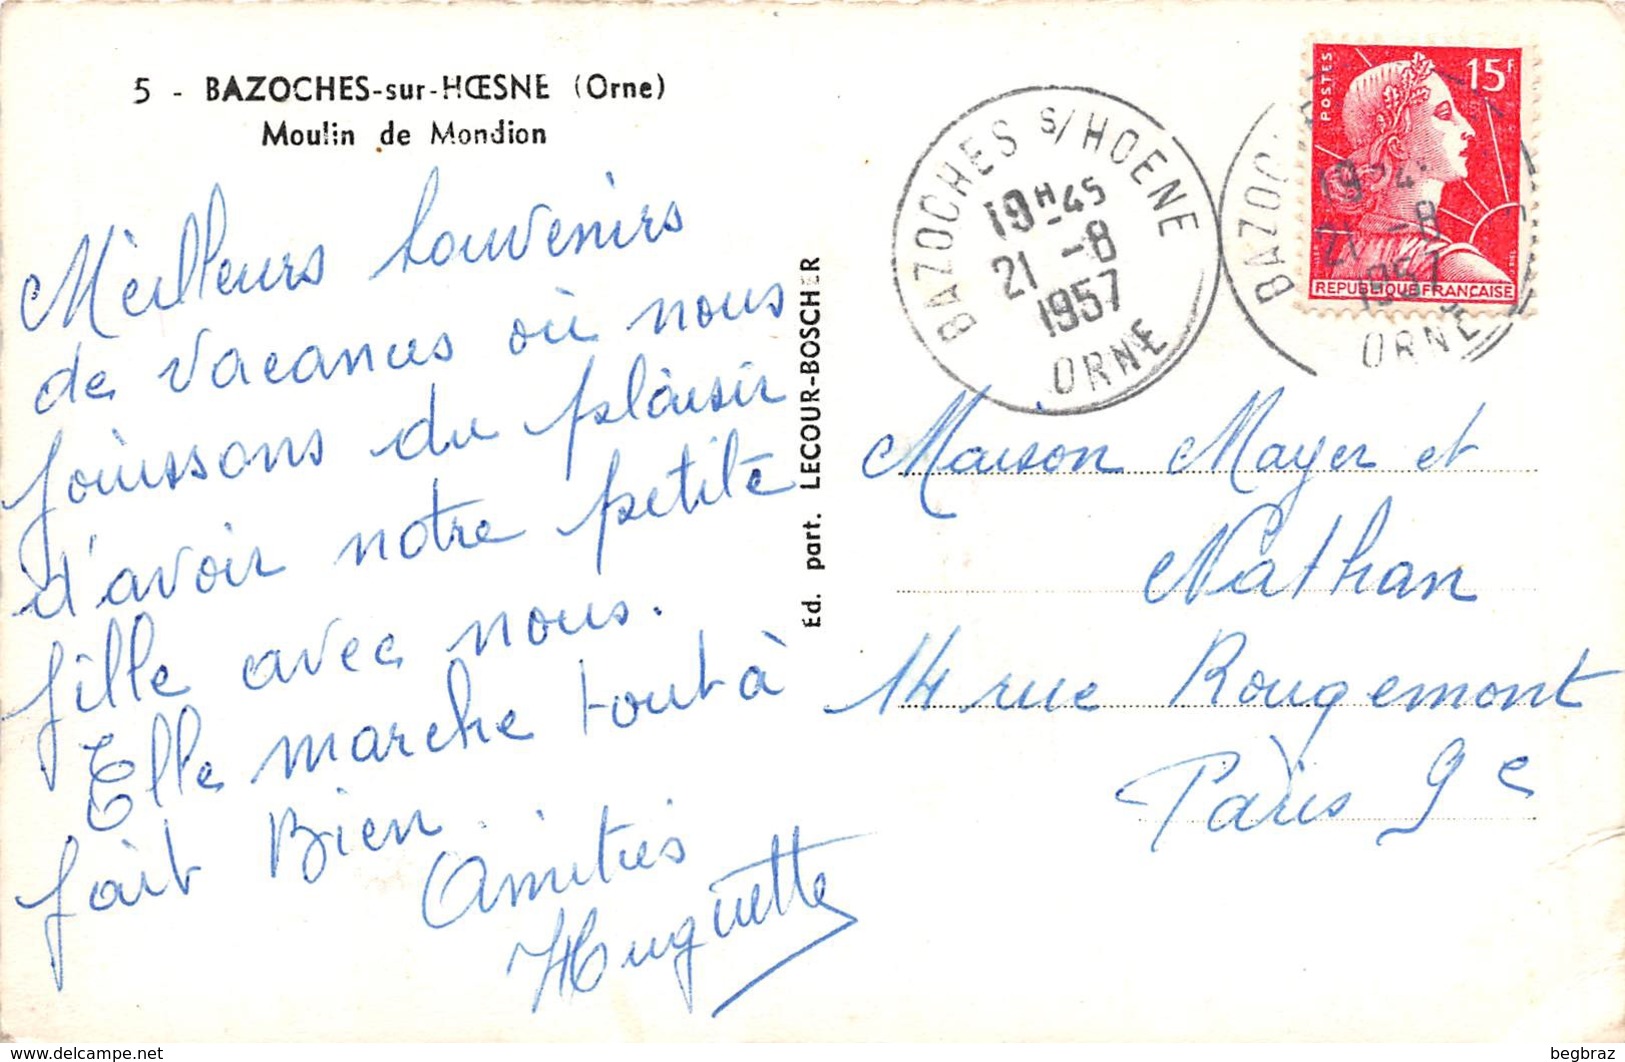 5 - BAZOCHES-sur-HŒSNE (Orne)
Moulin de Mondion
Meilleurs souvenirs
de vacances où nous
jouissons du plaisir
d'avoir notre petite
fille avec nous.
Elle marche tout à
fait Bien.
Amitiés
Huguette
Ed. part. LECOUR-BOSCHER
BAZOCHES S/HOENE
19H45
21 -8
1957
ORNE
POSTES
15F
REPUBLIQUE FRANÇAISE
BAZOC
19 4
21 -8
1957
ORNE
Maison Mayer et
Nathan
14 rue Rougemont
Paris 9e
delcampe.net
begbraz